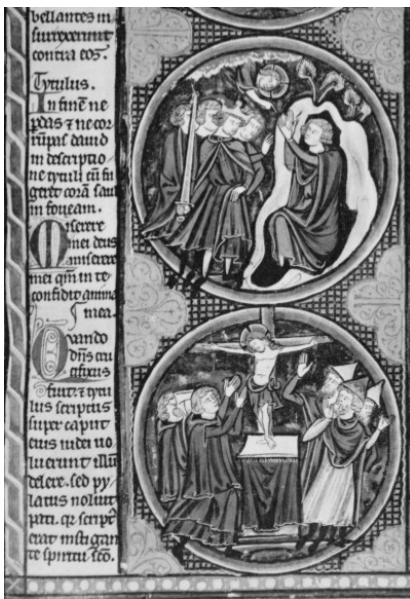 vellantes in
surrexerunt
contra eos.
Tytulus.
In finē ne
pdas ⁊ ne cor
rūpas david
in descriptio
ne tytuli cū fu
geret corā saul
in foveam.
Miserere
mei deus
miserere
mei qm̄ in te
confidit anima
mea.
Quando
dn̄s cru
cifixus
fuit ⁊ tytu
lus scriptus
super caput
eius iudei uo
luerunt illū
delere. sed py
latus noluit
pati. qr script̄
erat instigan
te spiritu sc̄o.